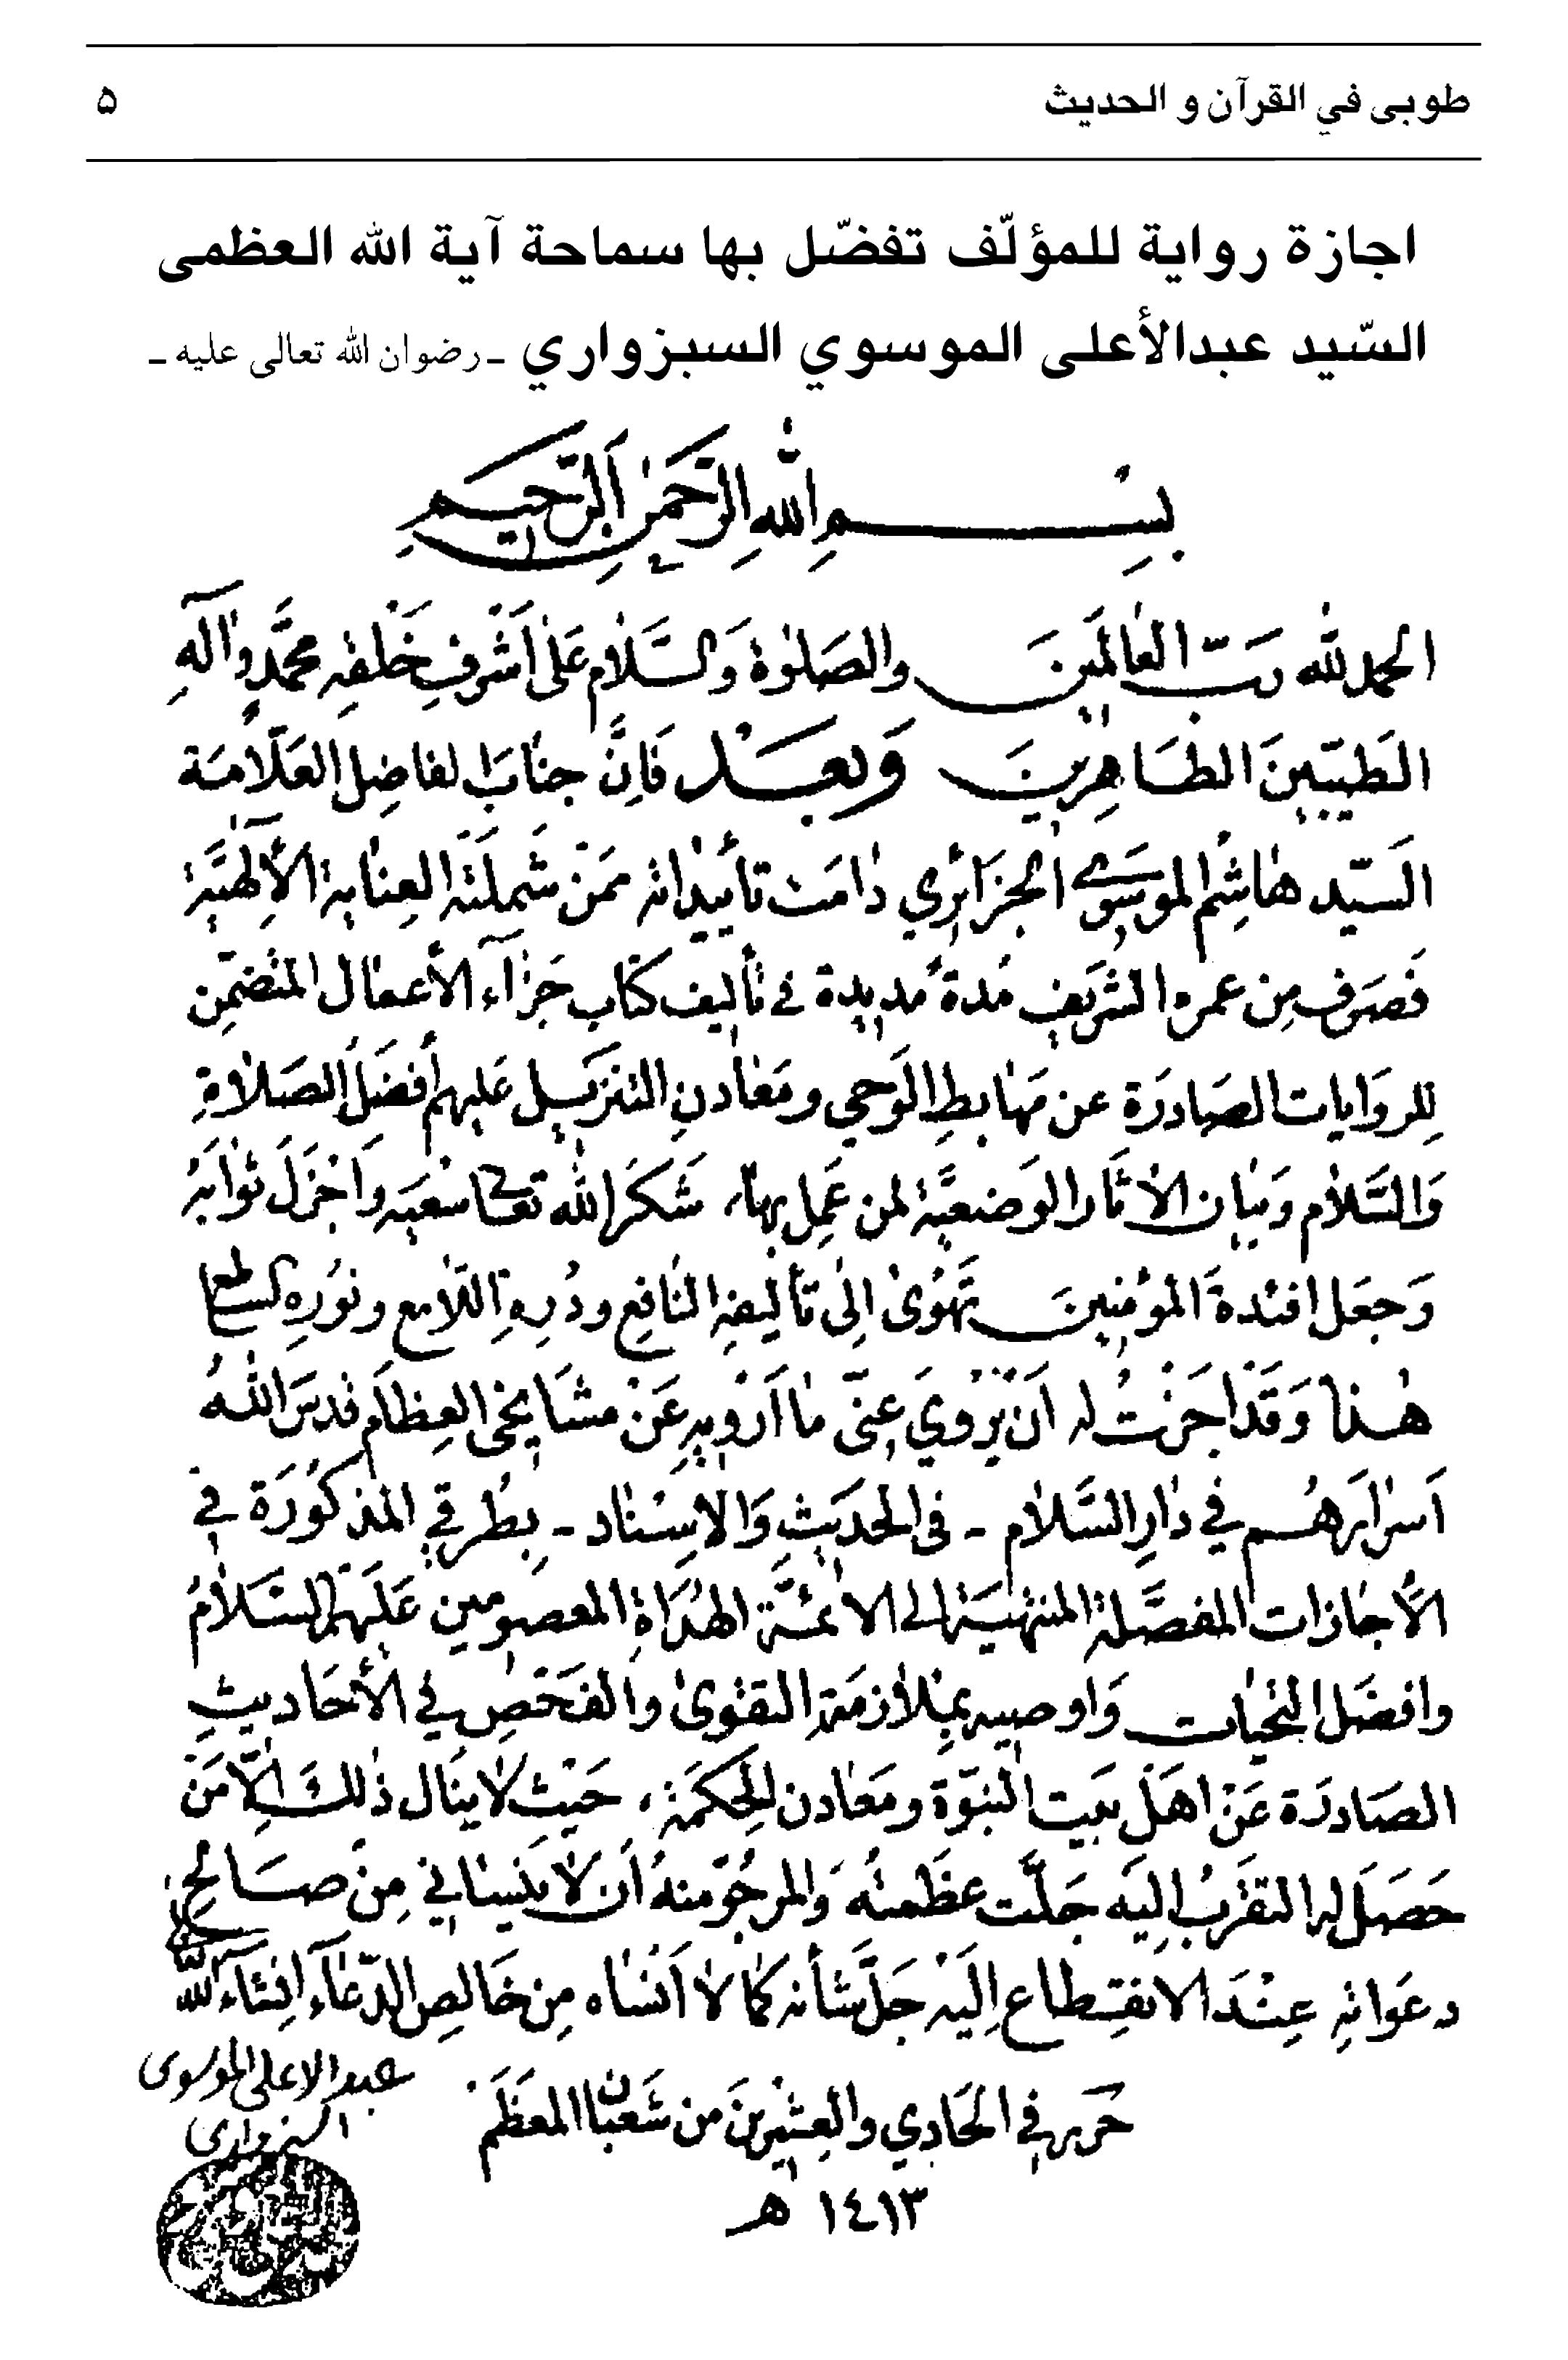 طوبى في القرآن و الحديث ۵
اجازة رواية للمؤلّف تفضّل بها سماحة آية الله العظمى
السّيد عبدالأعلى الموسوي السبزواري ـ رضوان الله تعالى عليه ـ
بِسْمِ اللهِ الرَّحمٰنِ الرَّحيمِ
الحمد لله رَبّ العٰالَمينَ والصَلوٰة وَالسَّلٰام عَلىٰ اَشْرفِ خَلقِهِ محمَّدٍ وآلهِ
الطَيّبينَ الطَاهِرينَ وَبعَد فَاِنَّ جنٰابَ الفاضِل العَلّامَة
السَيّد هٰاشِم الموسَوي الجزَائري دٰامَت تأييداته ممَنْ شَمِلَتْه العِنٰاية الاِلٰهيَّة
فَصَرف مِن عمره الشَريف مُدةً مَديدة في تأليف كتٰاب جَزٰآء الأعمٰال المتضمِّن
لِلروَايات الصَادرَة عن مَهٰابطِ الوَحي ومَعٰادنِ التنزيل عَليهم أفضَل الصَلاٰةِ
وَالسَّلاٰم وَبيٰان الاٰثار الوَضعيَّة لمن عَمِل بهٰا، شَكرَ الله تعٰالى سَعيَه وَاَجْزَلَ ثوٰابَهُ
وَجعَل افئدةَ المؤمنينَ تَهْوىٰ اِلىٰ تأليفهِ النٰافِع ودُرِهِ اللّامِع ونُورِهِ السٰاطع
هٰذا وَقَد اجَزْتُ له اَنْ يَرْويَ عنّي مٰا اَرْويهِ عَنْ مشَايخي العِظاٰم قدسَ اللهُ
اَسرٰارَهُم في دٰارِ السَّلاٰم - في الحَديثِ وَالاِسْنٰاد - بِطُرقي المذكُورَة في
الأجٰازات المفصَّلة المنتهيَة الى الائمَّة الهُدَاةِ المعصومين عَلَيهمُ السَّلاٰمُ
وافضَل التحيٰات وَاوصيه بمِلاٰزمَةِ التقوىٰ والفَحْصِ في الأحَاديثِ
الصَادرَة عَنْ اهَلِ بيَت النبوّة ومَعٰادن الحِكمَة، حَيْث لاٰ ينٰال ذٰلكَ اِلّٰا مَنْ
حَصَلَ له التقرّبُ اِليَه جَلَّت عظَمتُه وَالمرجُوّ منهُ اَن لاٰ يَنسٰاني مِنْ صَالحِ
دعَواتهِ عِنْدَ الانقِطاع اِلَيْه جَلَّ شأنه كمٰا لاٰ اَنْسٰاه مِن خَالصِ الدّعٰآء اِنشٰآء الله
عبد الاعلى الموسوى
السبزوارى
حرره في الحَادي والعِشْرينَ من شَعْبٰان المعَظَم
١٤١٣ هـ